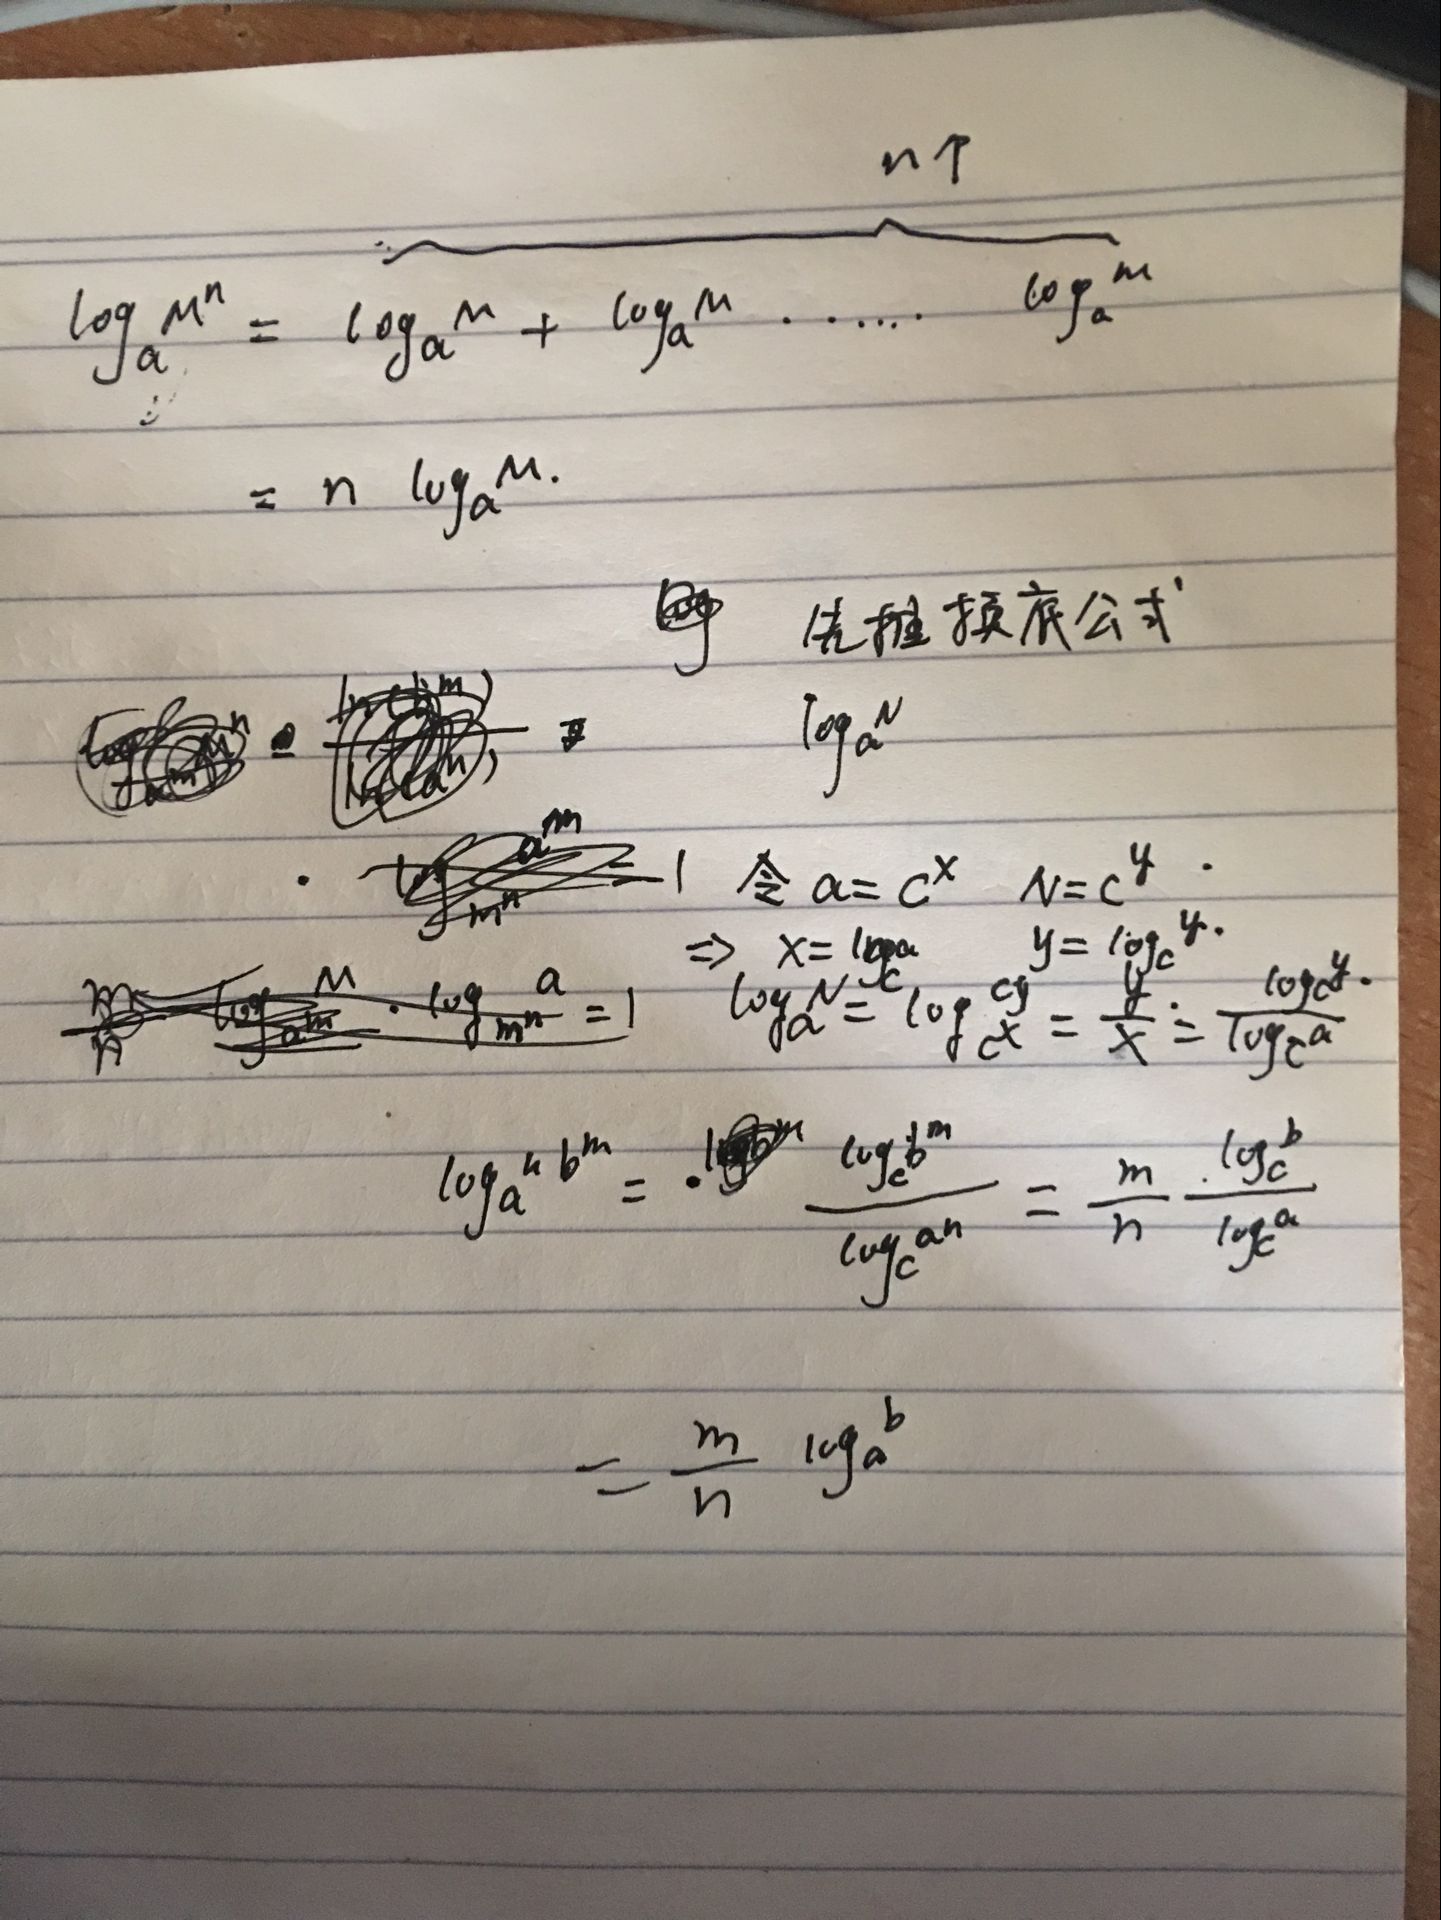 n个
log_a M^n = log_a M + log_a M ....... log_a m
= n log_a M.
先推换底公式
log_a N
令 a = c^x N = c^y .
⇒ x = log_c a y = log_c y.
· log a/m^n = 1 log_a N = log_{c^x} c^y = y/x = log_c y / log_c a.
log_{a^n} b^m = log_c b^m / log_c a^n = m/n · log_c b / log_c a
= m/n log_a b